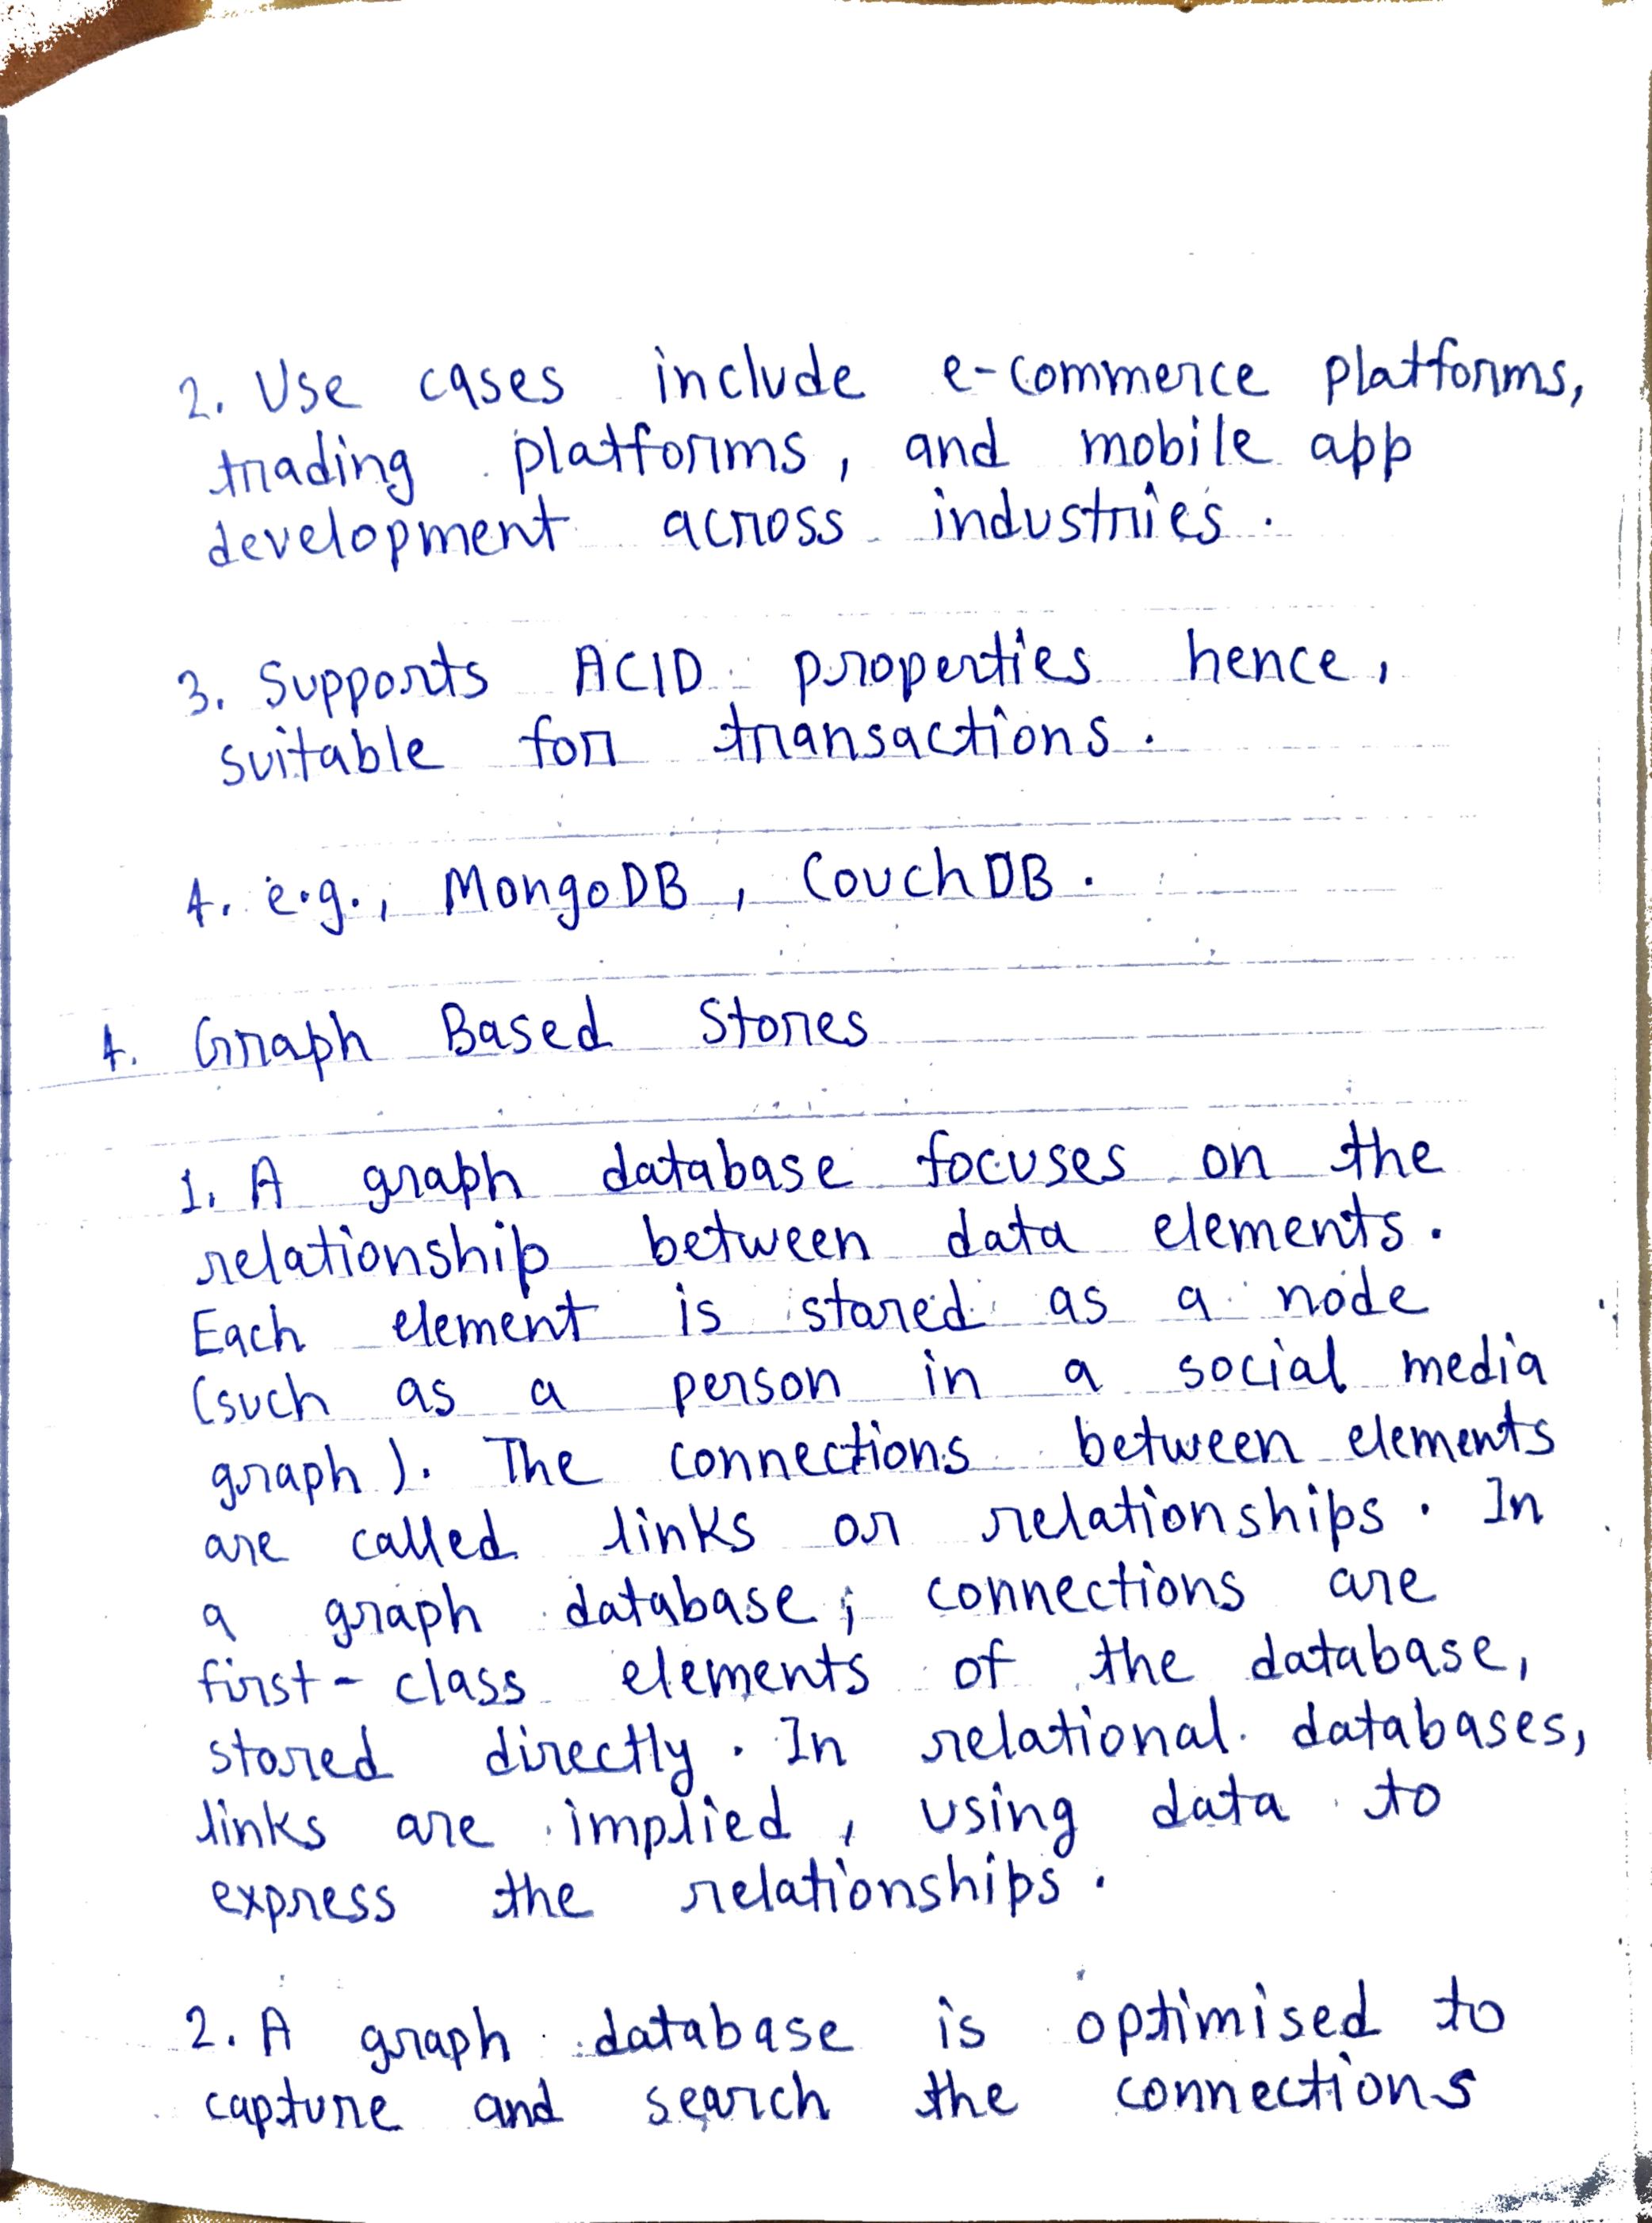 2. Use cases include e-commerce platforms,
trading platforms, and mobile app
development across industries.
3. Supports ACID properties hence,
suitable for transactions.
4. e.g., MongoDB, CouchDB.
4. Graph Based Stores
1. A graph database focuses on the
relationship between data elements.
Each element is stored as a node
(such as a person in a social media
graph). The connections between elements
are called links or relationships. In
a graph database; connections are
first-class elements of the database,
stored directly. In relational databases,
links are implied, using data to
express the relationships.
2. A graph database is optimised to
capture and search the connections